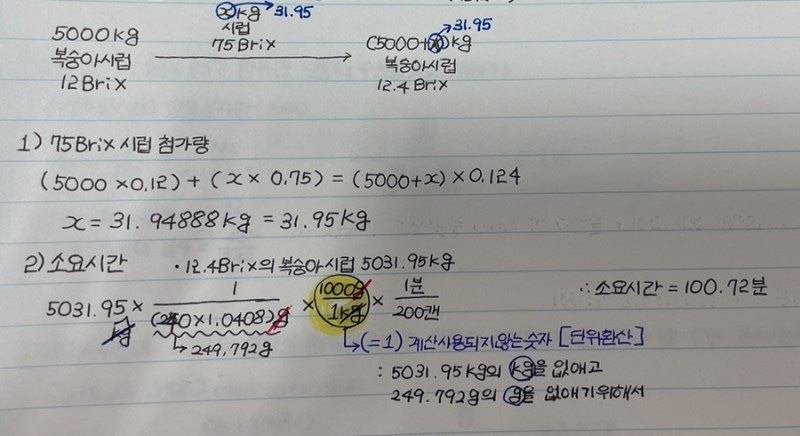 ⓧkg → 31.95
시럽
75Brix
5000kg
복숭아시럽
12Brix
→ 31.95
(5000+ⓧ)kg
복숭아시럽
12.4Brix
1) 75Brix 시럽 첨가량
(5000 x0.12) + (x x 0.75) = (5000+x) x 0.124
x = 31.94888kg = 31.95kg
2) 소요시간 · 12.4Brix의 복숭아시럽 5031.95kg
5031.95kg x 1/(240x1.0408)g x 1000g/1kg x 1분/200캔 ∴ 소요시간 = 100.72분
→ 249.792g
→ (=1) 계산사용되지않는숫자 [단위환산]
: 5031.95kg의 kg을 없애고
249.792g의 g을 없애기위해서